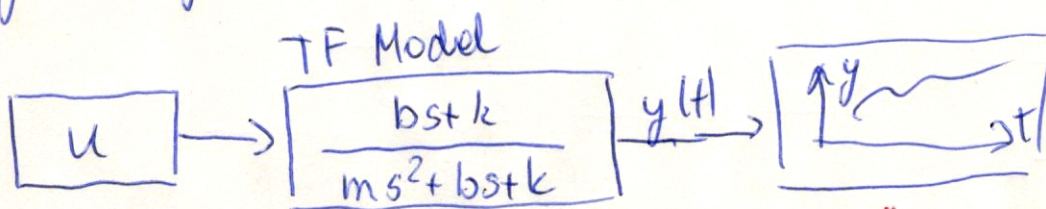 TF Model
u
bs+k
ms²+bs+k
y(t)
y
t